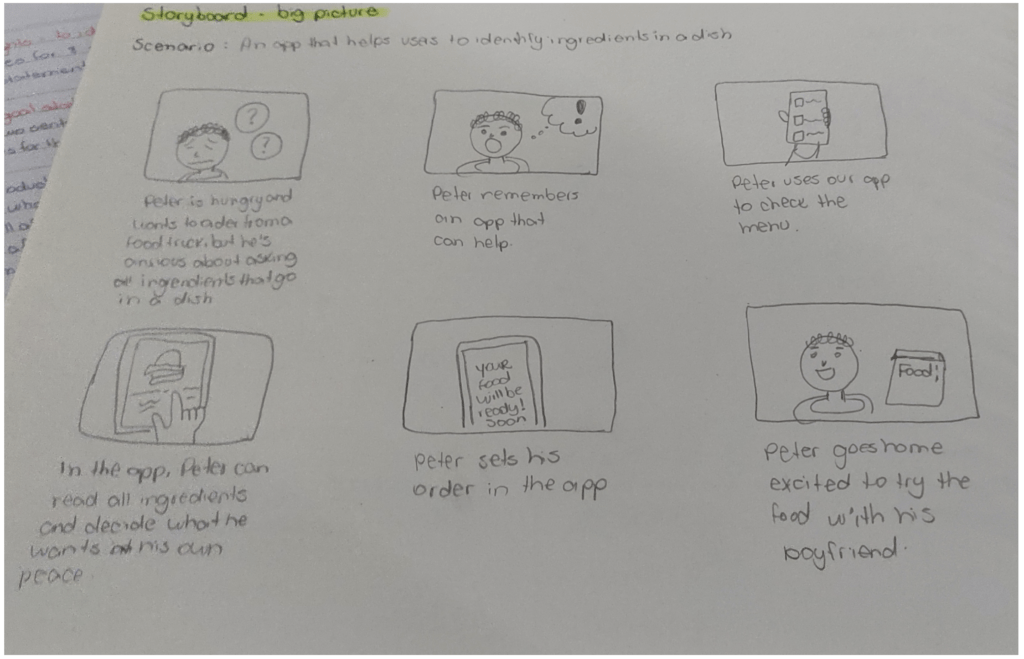 Storyboard - big picture
Scenario: An app that helps uses to identify ingredients in a dish
?
?
Peter is hungry and
wants to order from a
food truck, but he's
anxious about asking
all ingredients that go
in a dish
!
Peter remembers
an app that
can help.
Peter uses our app
to check the
menu.
In the app, Peter can
read all ingredients
and decide what he
wants at his own
peace.
your
food
will be
ready!
soon
Peter sets his
order in the app
Food!
Peter goes home
excited to try the
food with his
boyfriend.
goal
for